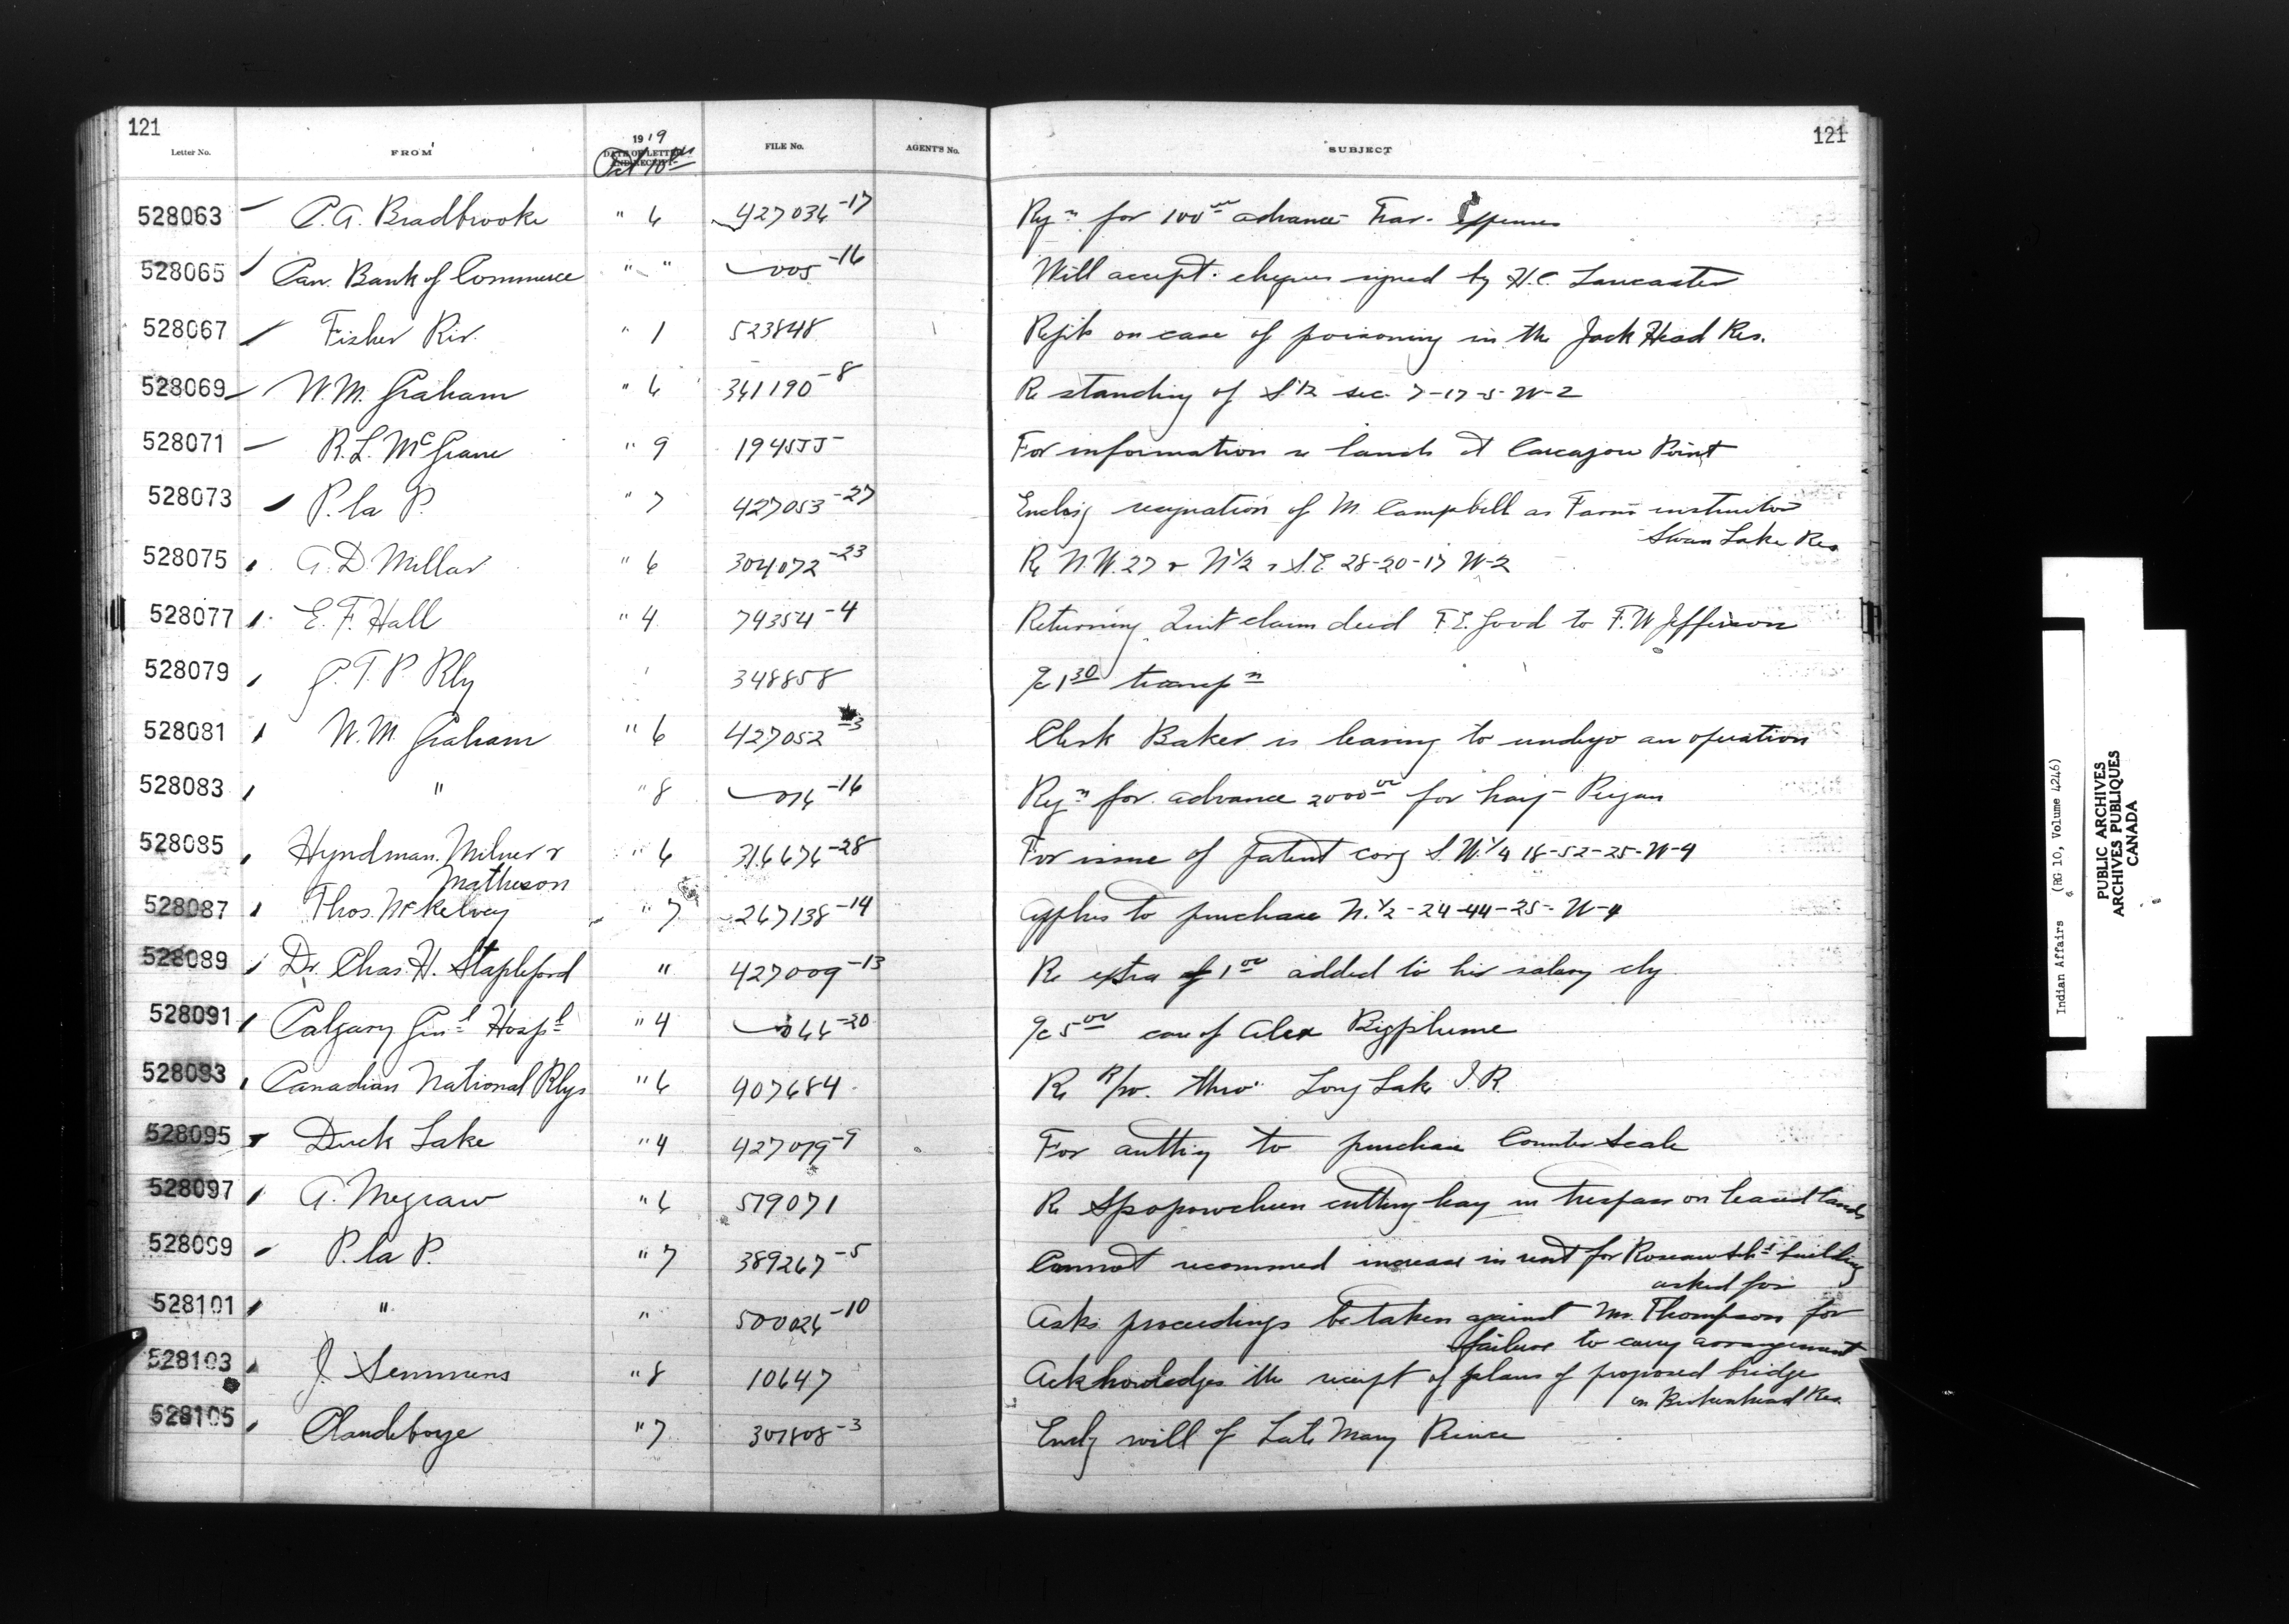 121
121
Letter No. FROM 1919 DATE OF LETTER AND RECEIPT FILE No. AGENT'S No. SUBJECT
Oct 10th
528063 C. A. Bradbrooke " 6 427036-17 Rqn for 100 00 advance Trav. Expenses
528065 Can. Bank of Commerce " " 005-16 Will accept cheques signed by H.C. Lancaster
528067 Fisher Riv. " 1 523848 Rept on case of poisoning in the Jack Head Res.
528069 W.M. Graham " 6 341190-8 Re standing of S.1/2 sec. 7-17-5-W-2
528071 R.L. McGrane " 9 194555 For information re lands at Carcajou Point
528073 P. la P. " 7 427053-27 Enclsg resignation of M. Campbell as Farm instructor
Swan Lake Res
528075 A. D. Millar " 6 304072-23 Re N.W. 27 & N 1/2 & S.E. 28-20-17 W-2
528077 E. F. Hall " 4 74354-4 Returning Quit claim deed F.E. Good to F.W Jefferson
528079 G. T. P. Rly 348858 a/c 1 30 transpn
528081 W. M. Graham " 6 427052-3 Clerk Baker is leaving to undergo an operation
528083 " " 8 016-16 Rqn for advance 2000 00 for hay - Piegan
528085 Hyndman, Milner & " 6 316676-28 For issue of patent covg S.W. 1/4 18-52-25-W-4
Matheson
528087 Thos. McKelvey " 7 267138-14 Applies to purchase N. 1/2-24-44-25-W-4
528089 Dr. Chas. H. Stapleford " 427009-13 Re extra of 1 00 added to his salary chq
528091 Calgary Genl Hospl " 4 066-20 a/c 5 00 care of Alex Bigplume
528093 Canadian National Rlys " 6 407684 Re R/w. thro' Long Lake I.R.
528095 Duck Lake " 4 427079-9 For authty to purchase Counter Scale
528097 A. Megraw " 6 519071 Re cutting hay in trespass on leased lands
528099 P. la P. " 7 389267-5 Cannot recommend increase in rent for Roseau Schl building
asked for
528101 " " 500026-10 Asks proceedings be taken against Mr. Thompson for
failure to carry arrangement
528103 J. Semmens " 8 10647 Acknowledges the receipt of plans of proposed bridge
on Brokenhead Res.
528105 Clandeboye " 7 301808-3 Enclg will of Late Mary Prince
Indian Affairs (RG 10, Volume 4246)
PUBLIC ARCHIVES
ARCHIVES PUBLIQUES
CANADA